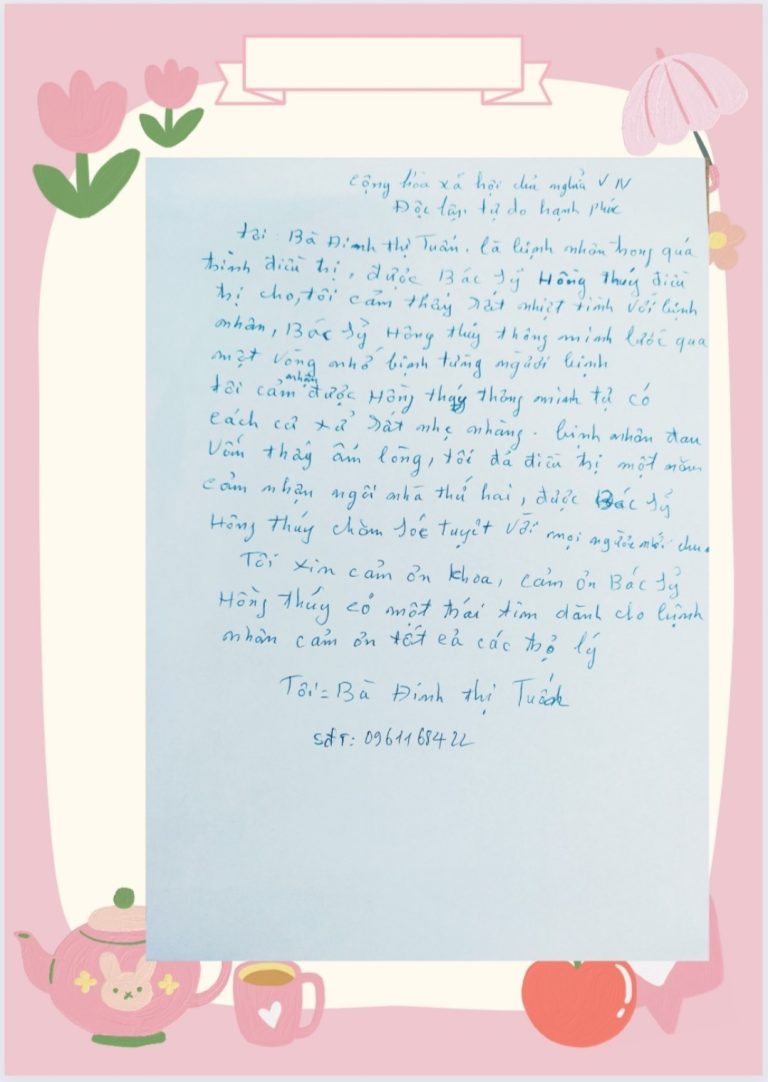 cộng hòa xã hội chủ nghĩa VN
Độc lập tự do hạnh phúc
tôi: Bà Đinh thị Tuấn. là bệnh nhân trong quá
trình điều trị, được Bác sỹ Hồng thúy điều
trị cho, tôi cảm thấy rất nhiệt tình với bệnh
nhân, Bác sỹ Hồng thúy thông minh lướt qua
một vòng nhớ bệnh từng người bệnh
tôi cảm nhận được Hồng thúy thông minh tự có
cách cư xử rất nhẹ nhàng. bệnh nhân đau
vẫn thấy ấm lòng, tôi đã điều trị một năm
cảm nhận ngôi nhà thứ hai, được Bác sỹ
Hồng thúy chăm sóc tuyệt vời mọi người nói
Tôi xin cảm ơn khoa, cảm ơn Bác sỹ
Hồng thúy có một trái tim dành cho bệnh
nhân cảm ơn tất cả các trợ lý
Tôi = Bà Đinh thị
sđt: 0961168422